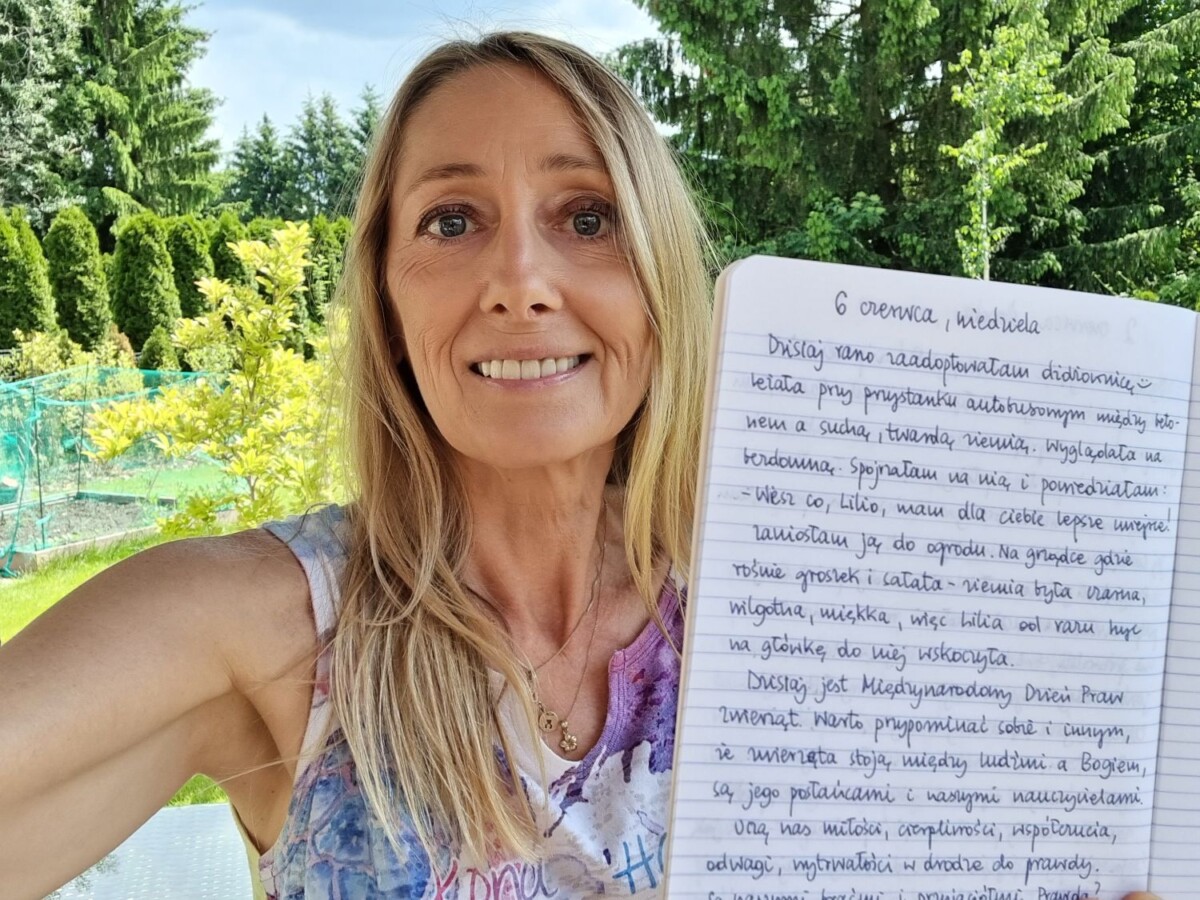 6 czerwca, niedziela
Dzisiaj rano zaadoptowałam dżdżownicę
Leżała przy przystanku autobusowym między beto-
nem a suchą, twardą ziemią. Wyglądała na
bezdomną. Spojrzałam na nią i powiedziałam:
- Wiesz co, Lilio, mam dla ciebie lepsze miejsce!
Zaniosłam ją do ogrodu. Na grządce gdzie
rośnie groszek i sałata - ziemia była czarna,
wilgotna, miękka, więc Lilia od razu hyc
na główkę do niej wskoczyła.
Dzisiaj jest Międzynarodowy Dzień Praw
Zwierząt. Warto przypominać sobie i innym,
że zwierzęta stoją między ludźmi a Bogiem,
są jego posłańcami i naszymi nauczycielami.
Uczą nas miłości, cierpliwości, współczucia,
odwagi, wytrwałości w drodze do prawdy.
Są naszymi braćmi i przyjaciółmi. Prawda?